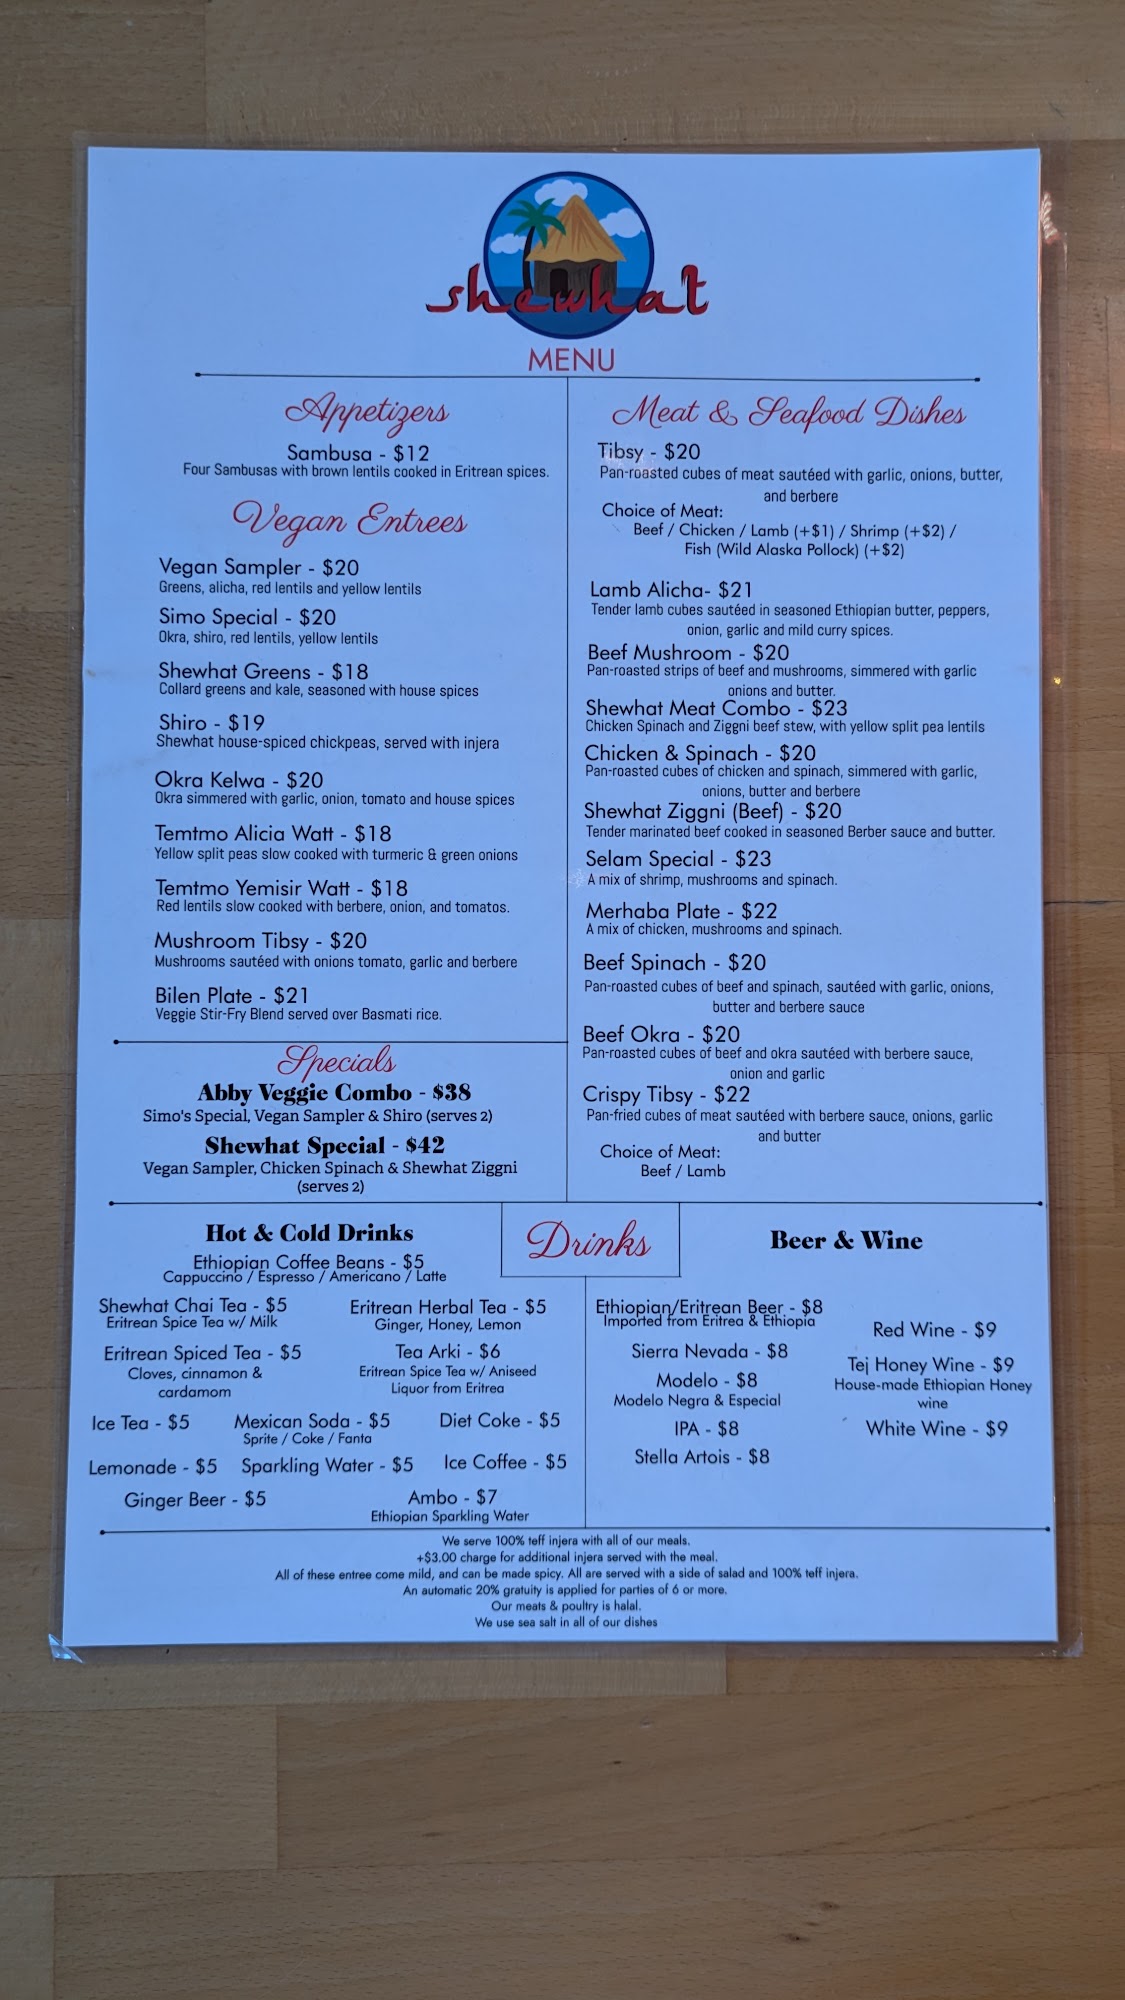 shewhat
MENU
Appetizers
Sambusa - $12
Four Sambusas with brown lentils cooked in Eritrean spices.
Vegan Entrees
Vegan Sampler - $20
Greens, alicha, red lentils and yellow lentils
Simo Special - $20
Okra, shiro, red lentils, yellow lentils
Shewhat Greens - $18
Collard greens and kale, seasoned with house spices
Shiro - $19
Shewhat house-spiced chickpeas, served with injera
Okra Kelwa - $20
Okra simmered with garlic, onion, tomato and house spices
Temtmo Alicia Watt - $18
Yellow split peas slow cooked with turmeric & green onions
Temtmo Yemisir Watt - $18
Red lentils slow cooked with berbere, onion, and tomatos.
Mushroom Tibsy - $20
Mushrooms sautéed with onions tomato, garlic and berbere
Bilen Plate - $21
Veggie Stir-Fry Blend served over Basmati rice.
Specials
Abby Veggie Combo - $38
Simo's Special, Vegan Sampler & Shiro (serves 2)
Shewhat Special - $42
Vegan Sampler, Chicken Spinach & Shewhat Ziggni
(serves 2)
Meat & Seafood Dishes
Tibsy - $20
Pan-roasted cubes of meat sautéed with garlic, onions, butter,
and berbere
Choice of Meat:
Beef / Chicken / Lamb (+$1) / Shrimp (+$2) /
Fish (Wild Alaska Pollock) (+$2)
Lamb Alicha- $21
Tender lamb cubes sautéed in seasoned Ethiopian butter, peppers,
onion, garlic and mild curry spices.
Beef Mushroom - $20
Pan-roasted strips of beef and mushrooms, simmered with garlic
onions and butter.
Shewhat Meat Combo - $23
Chicken Spinach and Ziggni beef stew, with yellow split pea lentils
Chicken & Spinach - $20
Pan-roasted cubes of chicken and spinach, simmered with garlic,
onions, butter and berbere
Shewhat Ziggni (Beef) - $20
Tender marinated beef cooked in seasoned Berber sauce and butter.
Selam Special - $23
A mix of shrimp, mushrooms and spinach.
Merhaba Plate - $22
A mix of chicken, mushrooms and spinach.
Beef Spinach - $20
Pan-roasted cubes of beef and spinach, sautéed with garlic, onions,
butter and berbere sauce
Beef Okra - $20
Pan-roasted cubes of beef and okra sautéed with berbere sauce,
onion and garlic
Crispy Tibsy - $22
Pan-fried cubes of meat sautéed with berbere sauce, onions, garlic
and butter
Choice of Meat:
Beef / Lamb
Drinks
Hot & Cold Drinks
Ethiopian Coffee Beans - $5
Cappuccino / Espresso / Americano / Latte
Shewhat Chai Tea - $5
Eritrean Spice Tea w/ Milk
Eritrean Herbal Tea - $5
Ginger, Honey, Lemon
Eritrean Spiced Tea - $5
Cloves, cinnamon &
cardamom
Tea Arki - $6
Eritrean Spice Tea w/ Aniseed
Liquor from Eritrea
Ice Tea - $5
Mexican Soda - $5
Sprite / Coke / Fanta
Diet Coke - $5
Lemonade - $5
Sparkling Water - $5
Ice Coffee - $5
Ginger Beer - $5
Ambo - $7
Ethiopian Sparkling Water
Beer & Wine
Ethiopian/Eritrean Beer - $8
Imported from Eritrea & Ethiopia
Sierra Nevada - $8
Modelo - $8
Modelo Negra & Especial
IPA - $8
Stella Artois - $8
Red Wine - $9
Tej Honey Wine - $9
House-made Ethiopian Honey
wine
White Wine - $9
We serve 100% teff injera with all of our meals.
+$3.00 charge for additional injera served with the meal.
All of these entree come mild, and can be made spicy. All are served with a side of salad and 100% teff injera.
An automatic 20% gratuity is applied for parties of 6 or more.
Our meats & poultry is halal.
We use sea salt in all of our dishes